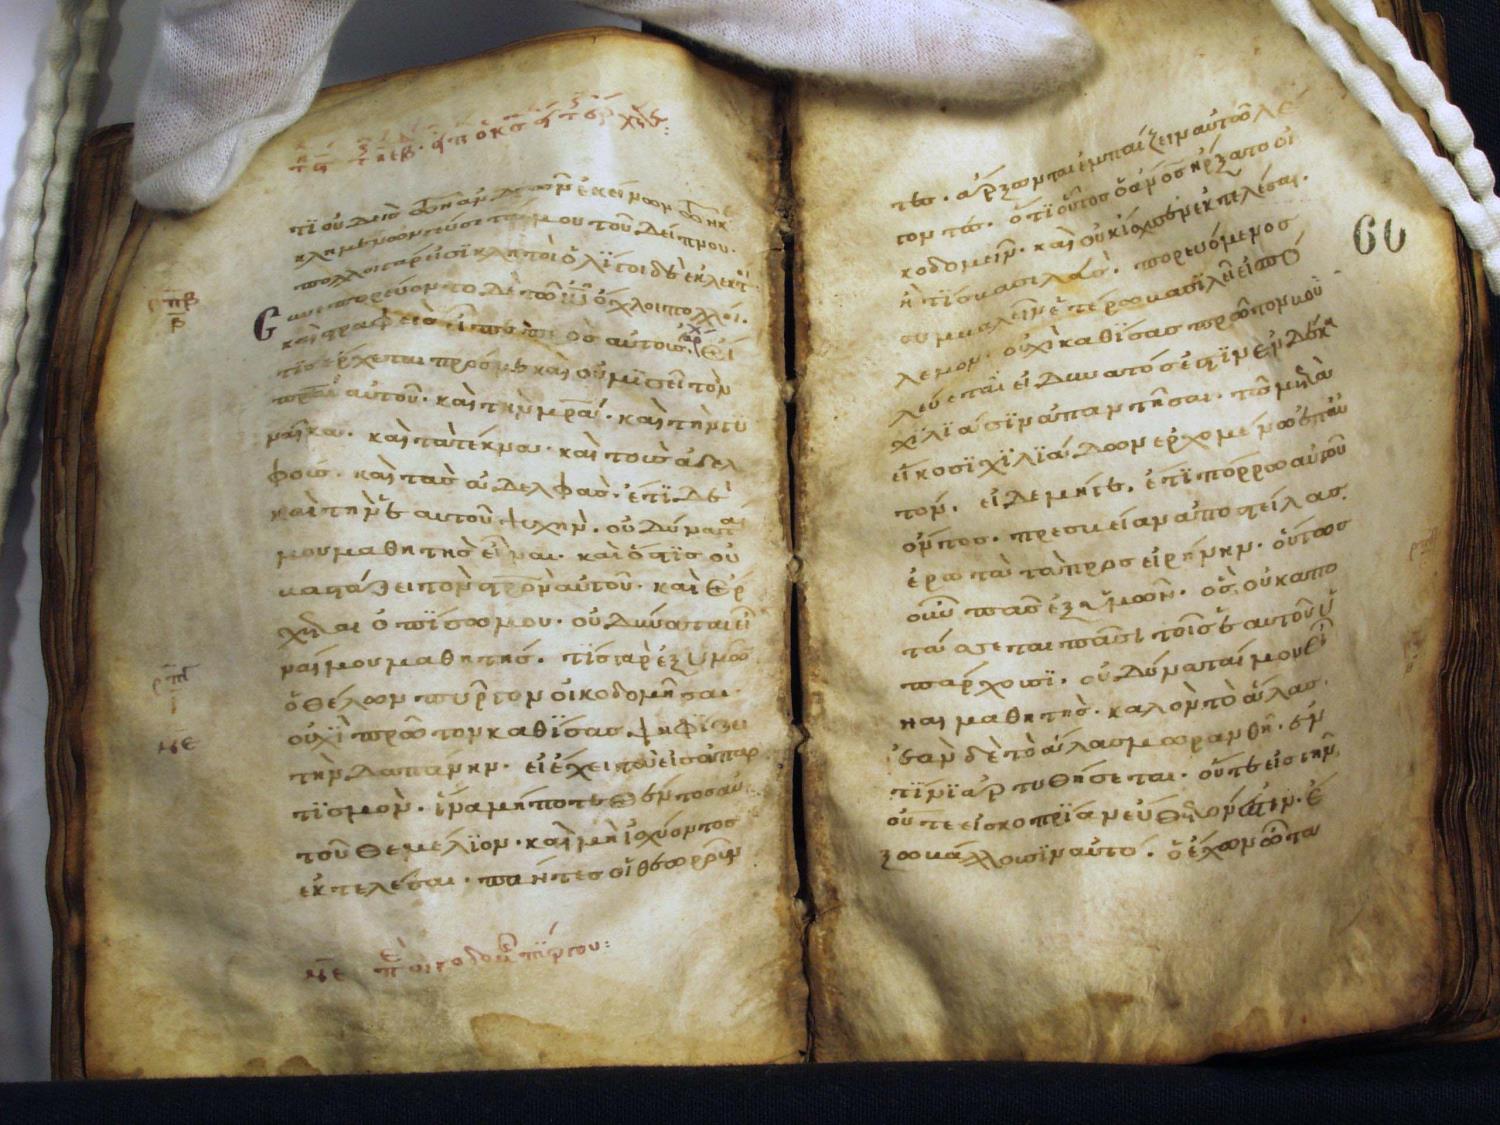 τι οὐδεὶς τῶν ἀνδρῶν ἐκείνων τῶν κε
κλημένων γεύσεταί μου τοῦ δείπνου.
πολλοὶ γάρ εἰσι κλητοὶ ὀλίγοι δὲ ἐκλεκτοί.
συνεπορεύοντο δὲ τῶ ιυ ὄχλοι πολλοί.
καὶ στραφεὶς εἶπε πρὸς αὐτούς. εἴ
τις ἔρχεται πρός με καὶ οὐ μισεῖ τὸν
πρα αὐτοῦ. καὶ τὴν μρα. καὶ τὴν γυ
ναῖκα. καὶ τὰ τέκνα. καὶ τοὺς ἀδελ
φούς. καὶ τὰς ἀδελφάς. ἔτι δὲ
καὶ τὴν ἑαυτοῦ ψυχήν. οὐ δύναται
μου μαθητὴς εἶναι. καὶ ὅστις οὐ
βαστάζει τὸν στρον αὐτοῦ. καὶ ἔρ
χεται ὀπίσω μου. οὐ δύναται εἶ
ναί μου μαθητής. τίς γὰρ ἐξ ὑμῶν
ὁ θέλων πύργον οἰκοδομῆσαι.
οὐχὶ πρῶτον καθίσας ψηφίζει
τὴν δαπάνην. εἰ ἔχει τὰ εἰς ἀπαρ
τισμόν. ἵνα μήποτε θέντος αὐ
τοῦ θεμέλιον. καὶ μὴ ἰσχύοντος
ἐκτελέσαι. πάντες οἱ θεωροῦν
με π οἰκοδομ πύργου:
τες. ἄρξωνται ἐμπαίζειν αὐτῶ λέ
γοντες. ὅτι οὗτος ὁ ανος ἤρξατο οἰ
κοδομεῖν. καὶ οὐκ ἴσχυσεν ἐκτελέσαι.
ἢ τίς βασιλεὺς. πορευόμενος
συμβαλεῖν ἑτέρω βασιλεῖ εἰς πό
λεμον. οὐχὶ καθίσας πρῶτον βου
λεύεται εἰ δυνατός ἐστιν ἐν δέκα
χιλιάσιν ἀπαντῆσαι. τῶ μετὰ
εἴκοσι χιλιάδων ἐρχομένω ἐπ αὐ
τόν. εἰ δὲ μήγε. ἔτι πόρρω αὐτοῦ
ὄντος. πρεσβείαν ἀποστείλας.
ἐρωτᾶ τὰ πρὸς εἰρήνην. οὕτως
οὖν πᾶς ἐξ ὑμῶν. ὃς οὐκ ἀπο
τάσσεται πᾶσι τοῖς ἑαυτοῦ ὑ
πάρχουσι. οὐ δύναταί μου εἶ
ναι μαθητής. καλὸν τὸ ἅλας.
ἐὰν δὲ τὸ ἅλας μωρανθῆ. ἐν
τίνι ἀρτυθήσεται. οὔτε εἰς γῆν,
οὔτε εἰς κοπρίαν εὔθετόν ἐστιν. ἔ
ξω βάλλουσιν αὐτό. ὁ ἔχων ὦτα
60